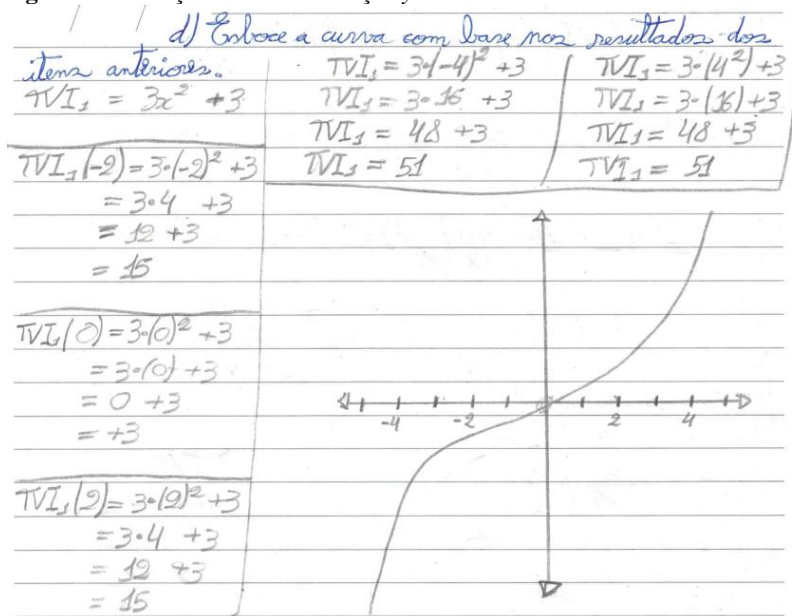 d) Esboce a curva com base nos resultados dos
itens anteriores.
TVI₁ = 3x² + 3
TVI₁(-2) = 3·(-2)² + 3
= 3·4 + 3
= 12 + 3
= 15
TVI₁(0) = 3·(0)² + 3
= 3·(0) + 3
= 0 + 3
= +3
TVI₁(2) = 3·(2)² + 3
= 3·4 + 3
= 12 + 3
= 15
TVI₁ = 3·(-4)² + 3
TVI₁ = 3·16 + 3
TVI₁ = 48 + 3
TVI₁ = 51
TVI₁ = 3·(4²) + 3
TVI₁ = 3·(16) + 3
TVI₁ = 48 + 3
TVI₁ = 51
-4 -2 2 4